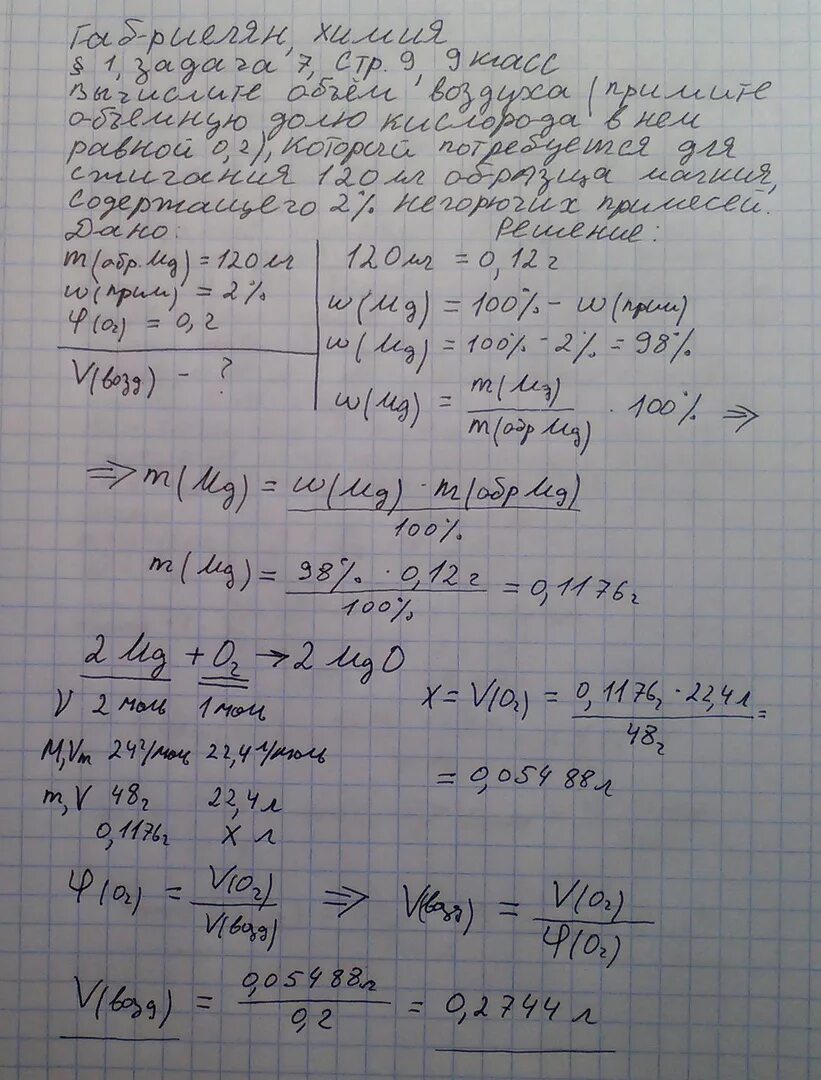 Габриелян, химия
§ 1, задача 7, стр. 9, 9 класс
Вычислите объём воздуха (примите
объёмную долю кислорода в нём
равной 0,2), который потребуется для
сжигания 120 мг образца магния,
содержащего 2% негорючих примесей.
Дано: Решение:
m(обр. Mg) = 120 мг
w(прим) = 2%
φ(O₂) = 0,2
V(возд) - ?
120 мг = 0,12 г
w(Mg) = 100% - w(прим)
w(Mg) = 100% - 2% = 98%
w(Mg) = m(Mg) / m(обр Mg) · 100% ⇒
⇒ m(Mg) = w(Mg) · m(обр Mg) / 100%
m(Mg) = 98% · 0,12 г / 100% = 0,1176 г
2 Mg + O₂ → 2 MgO
ν 2 моль 1 моль
M, Vm 24 г/моль 22,4 л/моль
m, V 48 г 22,4 л
0,1176 г X л
X = V(O₂) = 0,1176 г · 22,4 л / 48 г =
= 0,05488 л
φ(O₂) = V(O₂) / V(возд) ⇒ V(возд) = V(O₂) / φ(O₂)
V(возд) = 0,05488 л / 0,2 = 0,2744 л